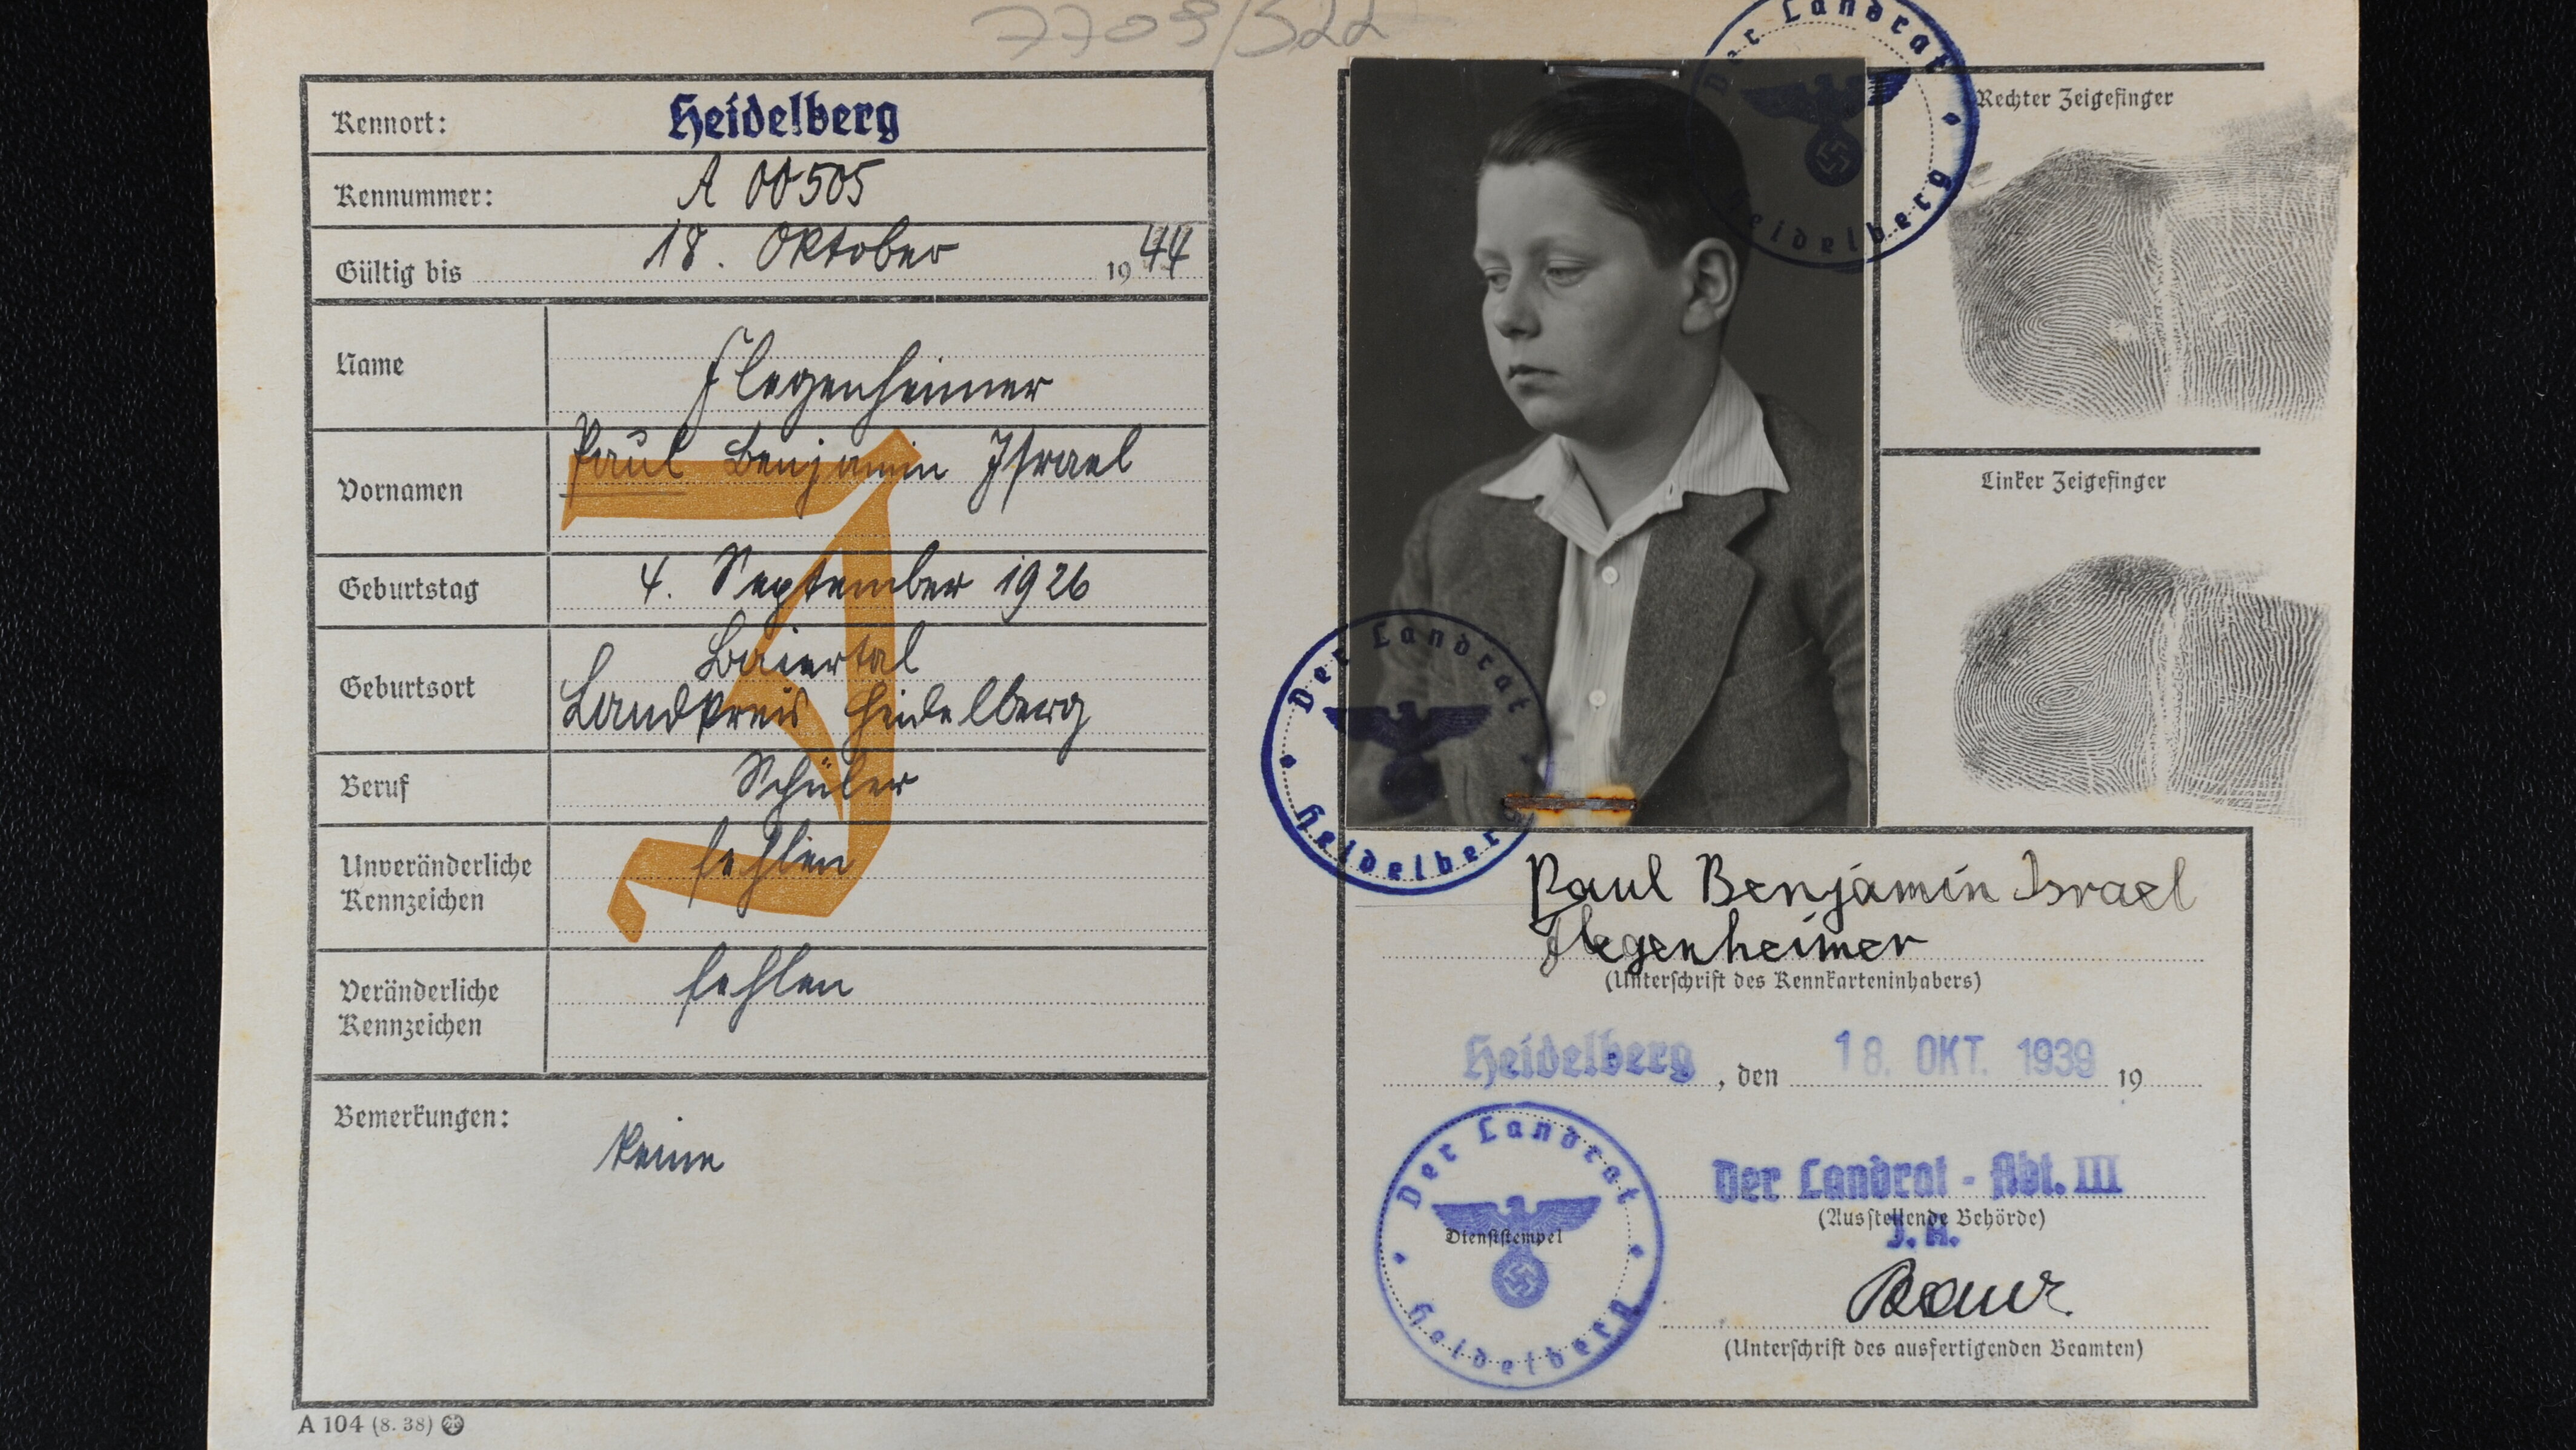 7709/522
Kennort: Heidelberg
Kennummer: A 00505
Gültig bis 18. Oktober 1944
Name Flegenheimer
Vornamen Paul Benjamin Israel
Geburtstag 4. September 1926
Geburtsort Baiertal
Landkreis Heidelberg
Beruf Schüler
Unveränderliche
Kennzeichen fehlen
Veränderliche
Kennzeichen fehlen
Bemerkungen: keine
A 104 (8. 38)
J
Der Landrat
Heidelberg
Rechter Zeigefinger
Linker Zeigefinger
Der Landrat
Heidelberg
Paul Benjamin Israel
Flegenheimer
(Unterschrift des Kennkarteninhabers)
Heidelberg, den 18. OKT. 1939 19
Der Landrat
Heidelberg
Dienststempel
Der Landrat - Abt. III
(Ausstellende Behörde)
J. A.
(Unterschrift des ausfertigenden Beamten)